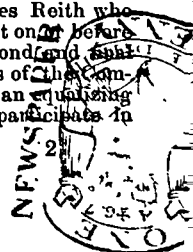 es Reith who
t on or before
ond and final
s of the Com-
an equalizing
participate in
2
NEWSPAPER